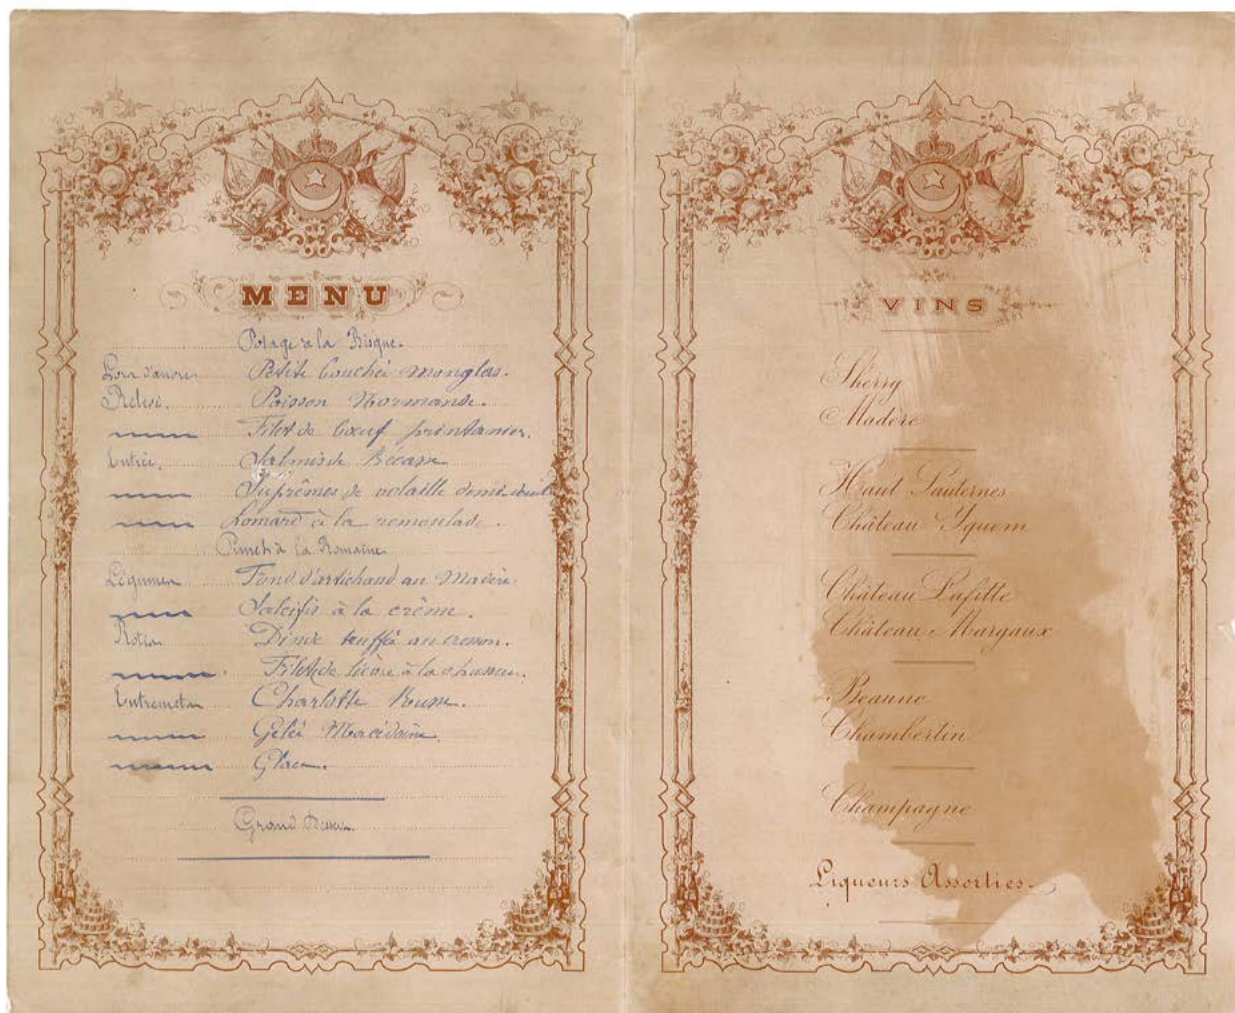 MENU
Potage à la Bisque.
Petite bouchée Monglas.
Relevé. Poisson Normande.
Filet de bœuf printanier.
Entrée. Salmis de Bécasse
Suprêmes de volaille demi-deuil
homard à la remoulade.
Punch à la Romaine
Légumes Fond d'artichaud au Madère
Salcifis à la crème.
Dinde truffée au cresson.
Filet de lièvre à la chasseur.
Entremets Charlotte Russe.
Gelée Macédoine.
Glace.
Grand Dessert.
VINS
Sherry
Madère
Haut Sauternes
Château Yquem
Château Lafitte
Château Margaux
Beaune
Chambertin
Champagne
Liqueurs Assorties